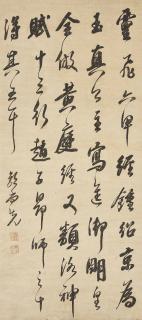 靈飛六甲經鍾紹京為
玉真公主寫進御明皇
全倣黃庭經又類洛神
賦十三行趙子昂師之十
得其三耳